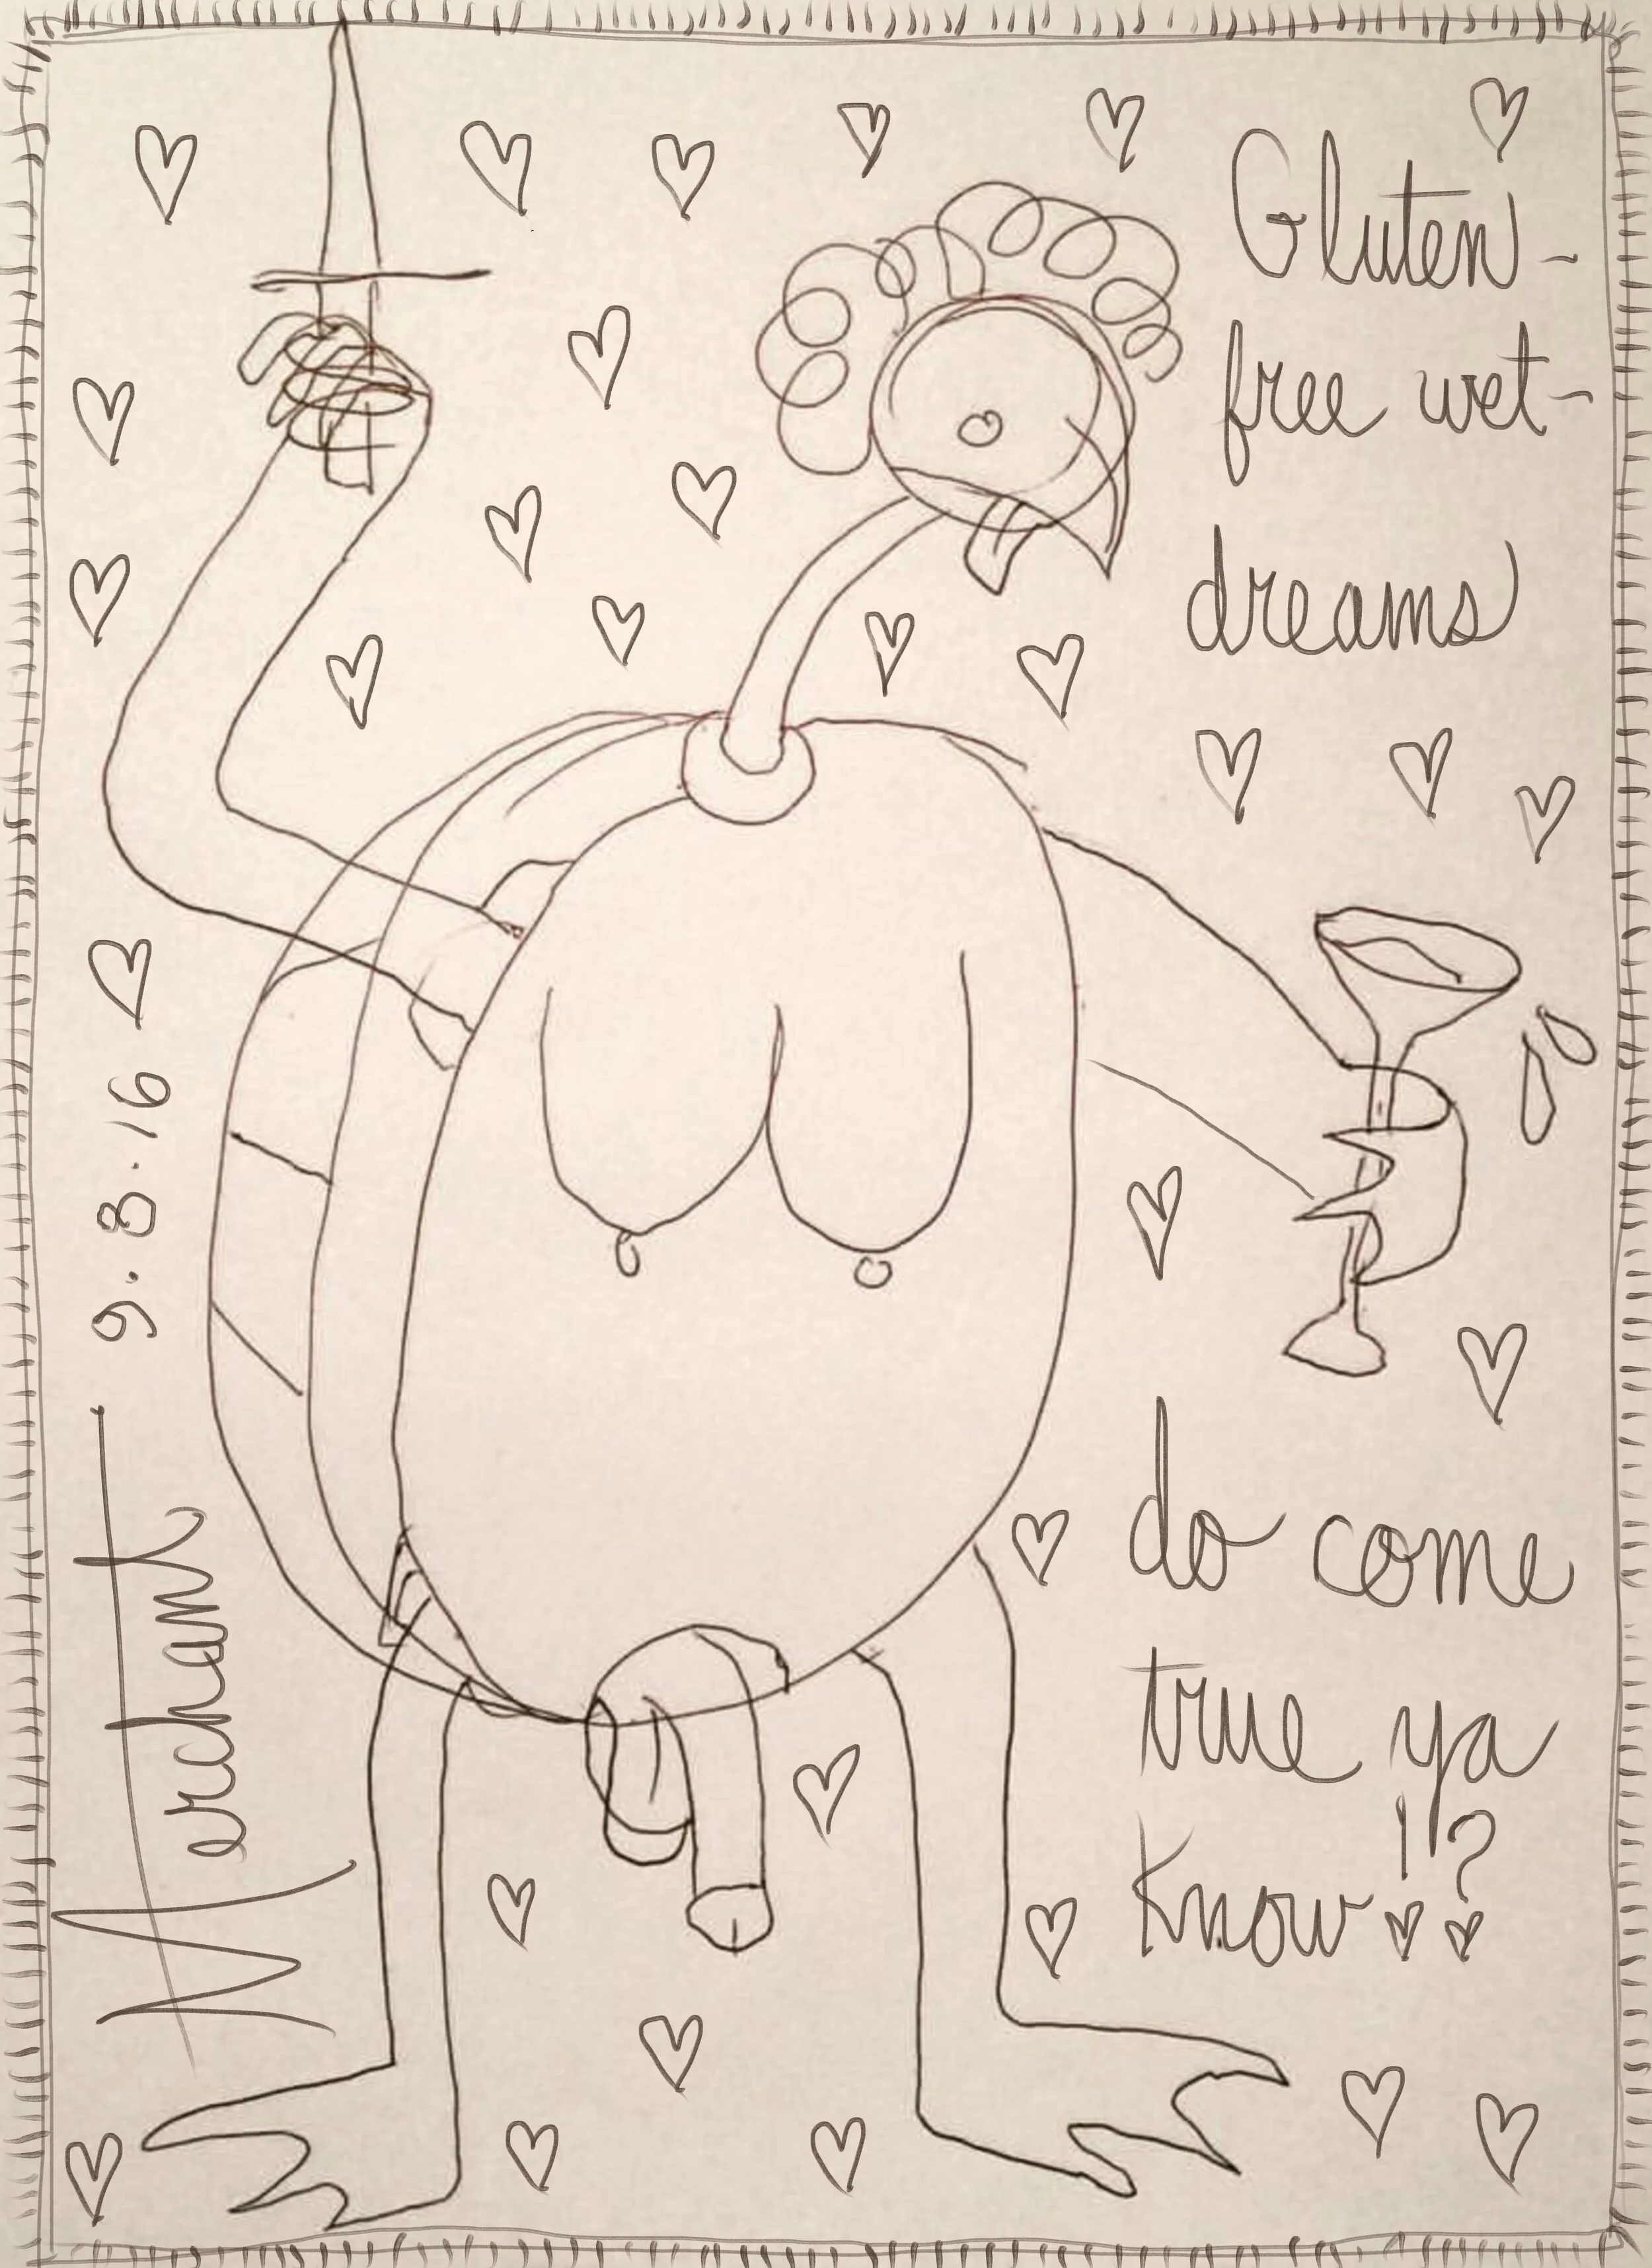 Gluten-
free wet-
dreams
do come
true ya
know!?
Merchant 9.8.16